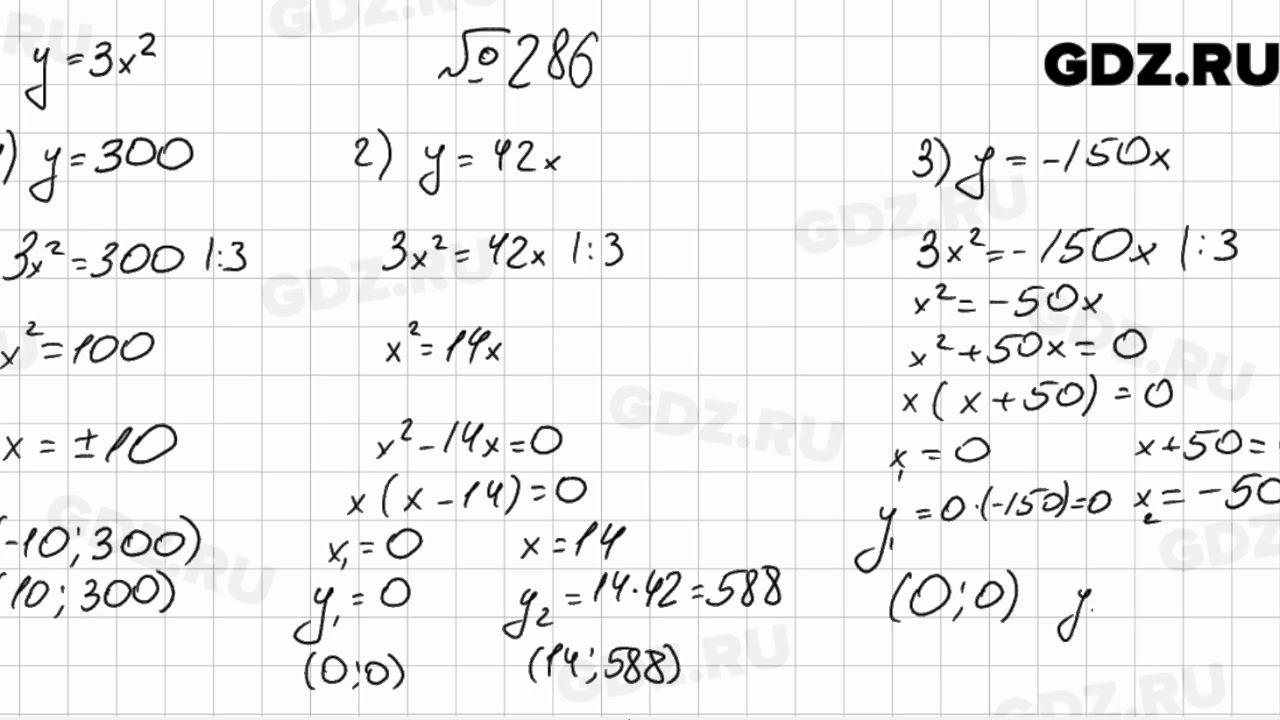 y = 3x²
№ 286
GDZ.RU
) y = 300
3x² = 300 |:3
x² = 100
x = ±10
(-10; 300)
(10; 300)
2) y = 42x
3x² = 42x |:3
x² = 14x
x² - 14x = 0
x (x - 14) = 0
x₁ = 0 x = 14
y₁ = 0 y₂ = 14 · 42 = 588
(0; 0) (14; 588)
3) y = -150x
3x² = -150x |:3
x² = -50x
x² + 50x = 0
x (x + 50) = 0
x₁ = 0 x + 50 =
y₁ = 0 · (-150) = 0 x₂ = -50
(0; 0) y